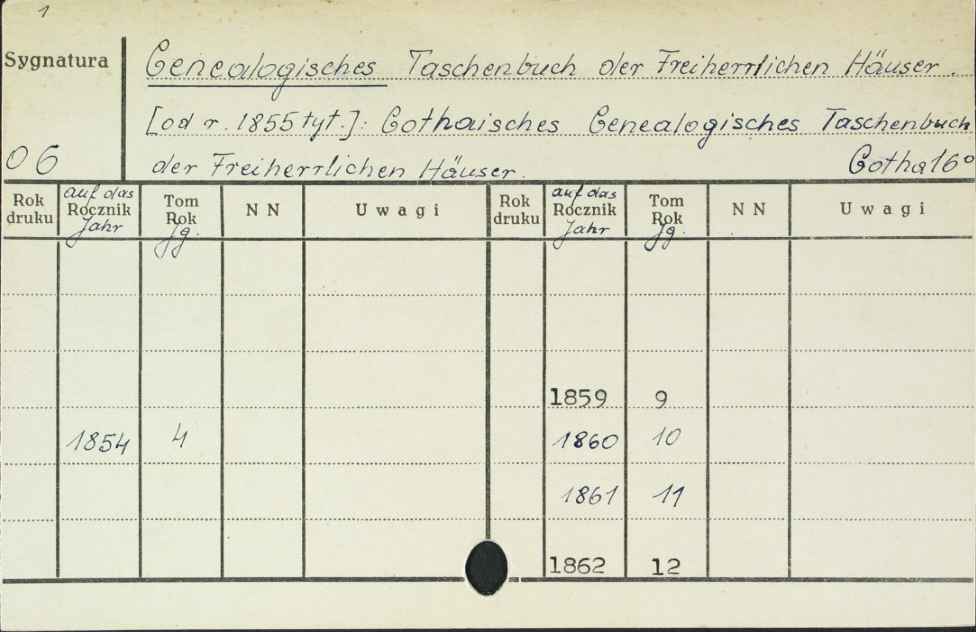 1
Sygnatura
Genealogisches Taschenbuch der Freiherrlichen Häuser.
[od r. 1855 tyt.]: Gothaisches Genealogisches Taschenbuch
06
der Freiherrlichen Häuser. Gotha 16°
Rok druku auf das Rocznik Jahr Tom Rok Jg. NN Uwagi Rok druku auf das Rocznik Jahr Tom Rok Jg. NN Uwagi
1859 9
1854 4 1860 10
1861 11
1862 12